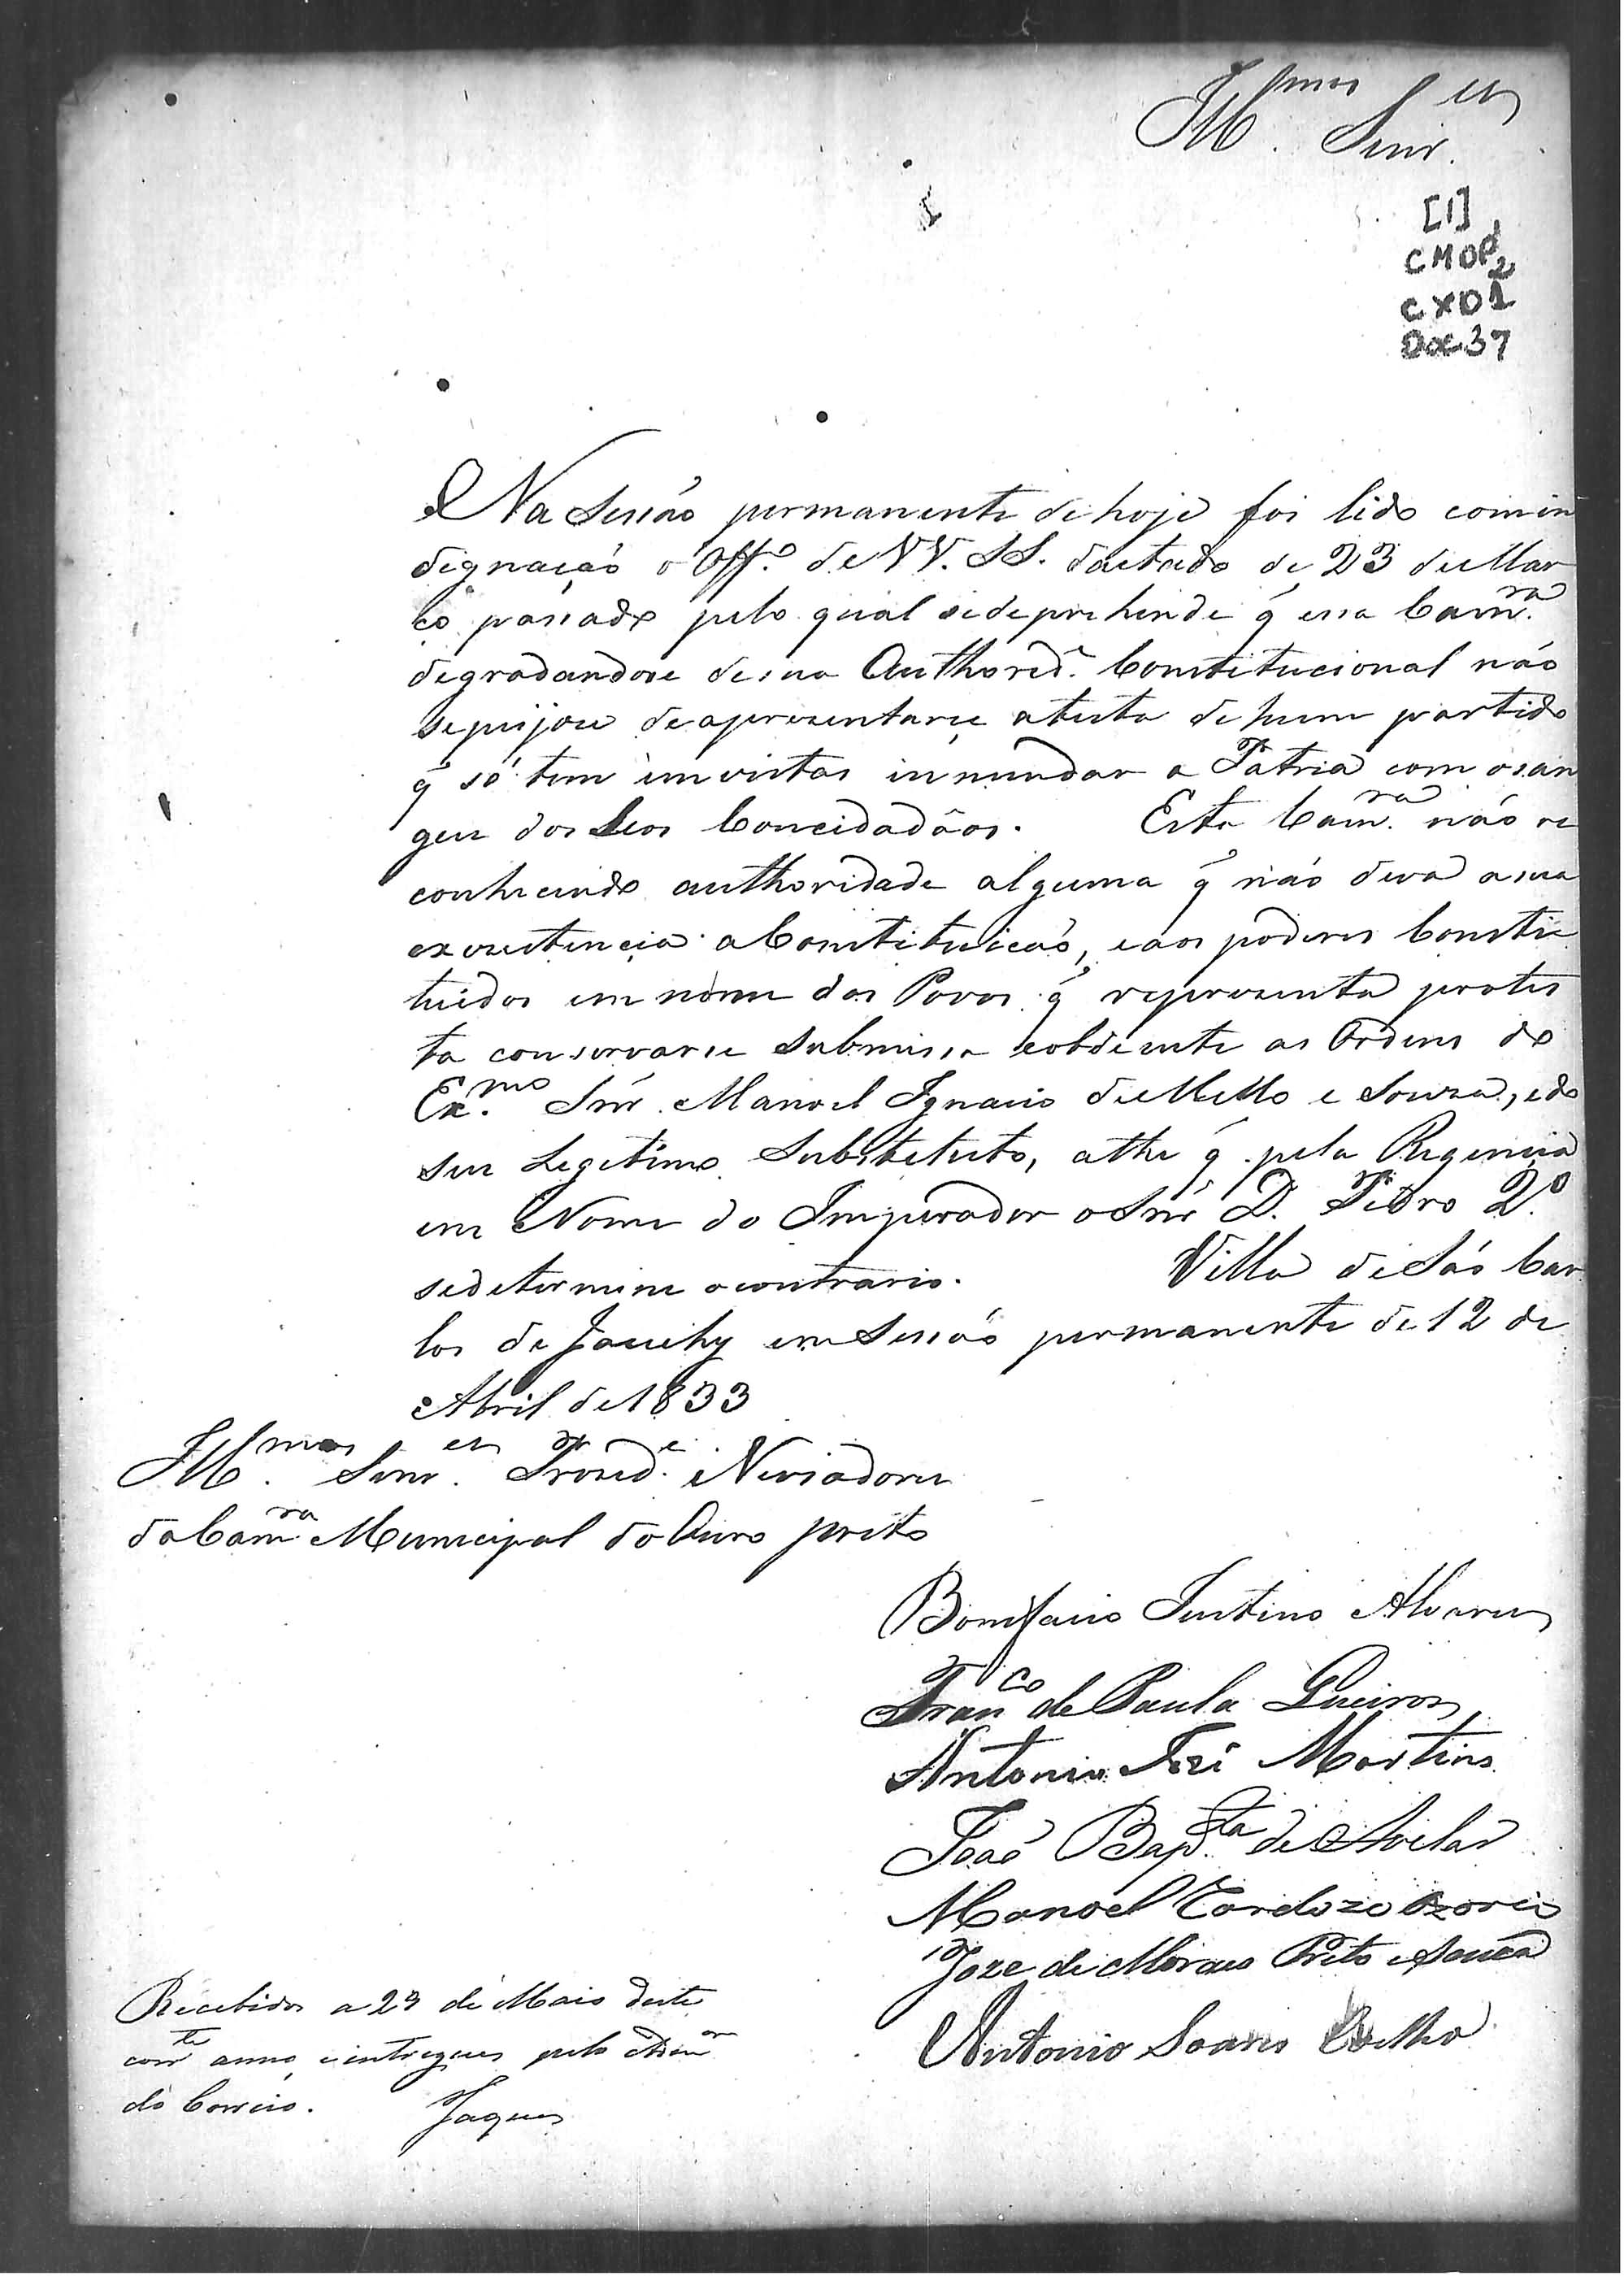 Ill.mos Senr.es
[1]
CMOP
2
CX01
Doc 37
Na Sessão permanente de hoje foi lido com in
dignação o Off.o de VV. SS. dactado de 23 de Mar
ço passado pelo qual se deprehende q̃ essa Cam.ra
degradandose de sua Authorid.e Constitucional não
se pejou de apresentarse a testa de hum partido
q̃ só tem em vistas innundar a Patria com o san
gue dos Seos Concidadãos. Esta Cam.ra não re
conhecendo authoridade alguma q̃ não deva a sua
exzistencia a Constituicão, e aos poderes Consti
tuidos em nome dos Povos q̃ representa protes
ta conservarse Submissa e obdiente as Ordens do
Ex.mo Snr. Manoel Ignacio de Mello e Souza, e do
seu Legitimo Substetuto, athe q̃ pela Regencia
em Nome do Imperador o Snr D. Pedro 2.o
se determine o contrario. Villa de São Car
los de Jacuhy em Sessão permanente de 12 de
Abril de 1833
Ill.mos Senr.es Prezid.e e Veriadores
da Cam.ra Municipal do Ouro preto
Bonifacio Justino Alvares
Fran.co de Paula Queiros
Antonio Jozé Martins
João Bap.ta de Avelar
Manoel Cardozo Ozorio
Joze de Moraes Preto e Souza
Antonio Soares Coelho
Recebidos a 23 de Maio deste
corr.te anno, e entregues pelo Adm.or
do Correio. Jaques